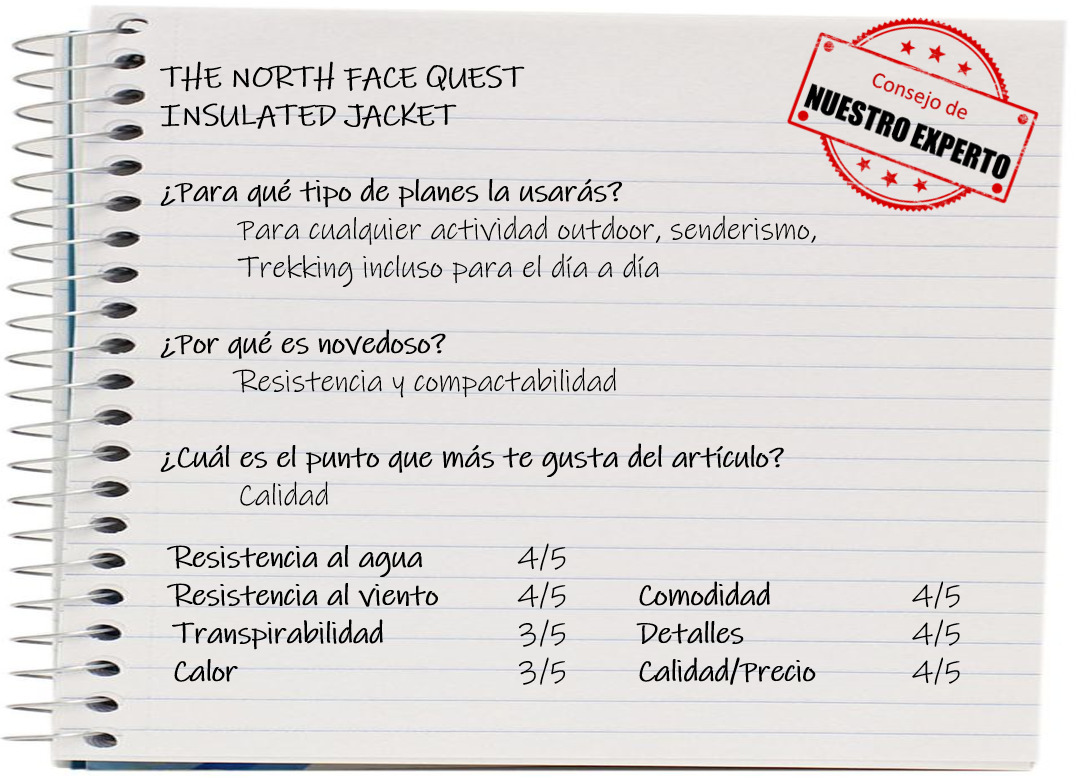 THE NORTH FACE QUEST
INSULATED JACKET
Consejo de
NUESTRO EXPERTO
¿Para qué tipo de planes la usarás?
Para cualquier actividad outdoor, senderismo,
Trekking incluso para el día a día
¿Por qué es novedoso?
Resistencia y compactabilidad
¿Cuál es el punto que más te gusta del artículo?
Calidad
Resistencia al agua 4/5
Resistencia al viento 4/5 Comodidad 4/5
Transpirabilidad 3/5 Detalles 4/5
Calor 3/5 Calidad/Precio 4/5